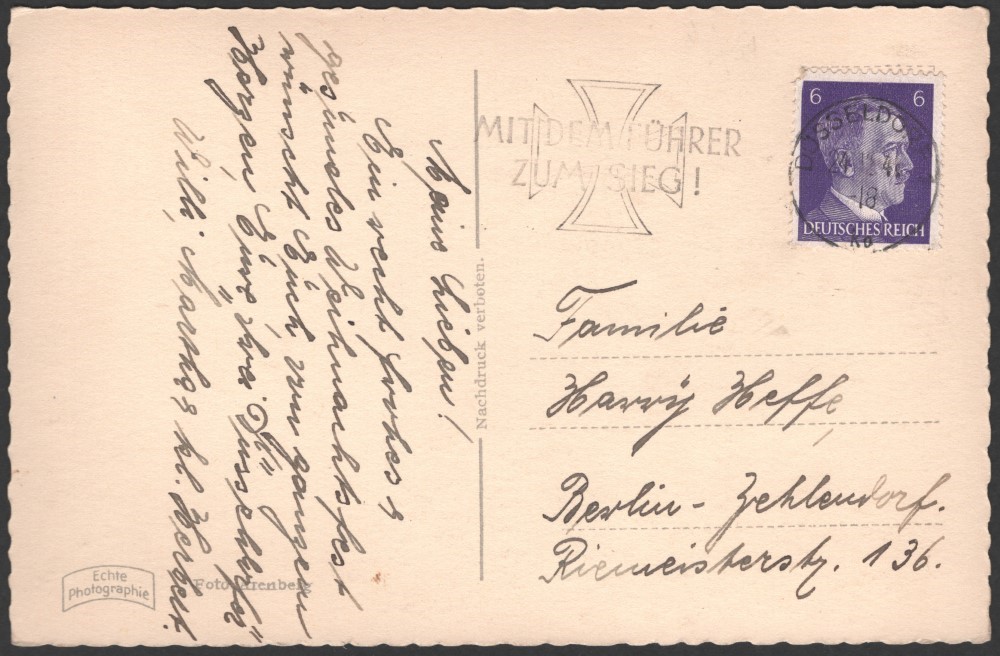 Meine Lieben!
Ein recht frohes &
gesundes Weihnachtsfest
wünscht Euch von ganzem
Herzen Eure drei "Düsseldorfer"
Willi, Martha & kl. Herbert.
Nachdruck verboten.
Echte
Photographie
Foto Arenberg
MIT DEM FÜHRER
ZUM SIEG!
6 6
DEUTSCHES REICH
DÜSSELDORF
18
Familie
Harry Heffe
Berlin-Zehlendorf.
Riemeisterstr. 136.